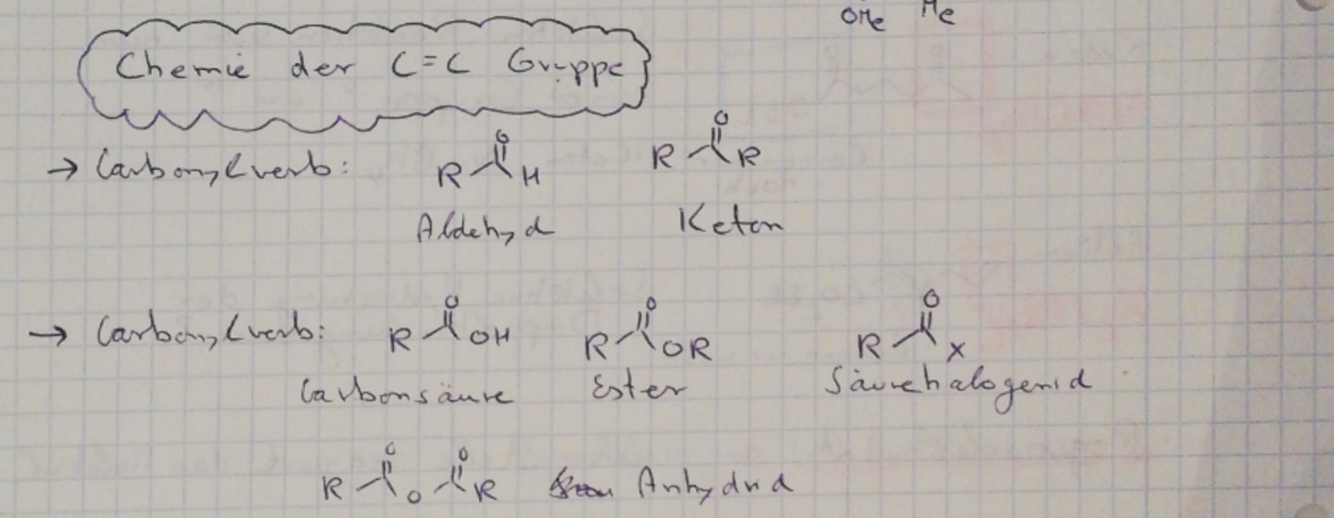 OMe Me
Chemie der C=C Gruppe
→ Carbonylverb:
R O H R O R
Aldehyd Keton
→ Carbonylverb: R O OH R O OR R O X
Carbonsäure Ester Säurehalogenid
R O O O R Anhydrid